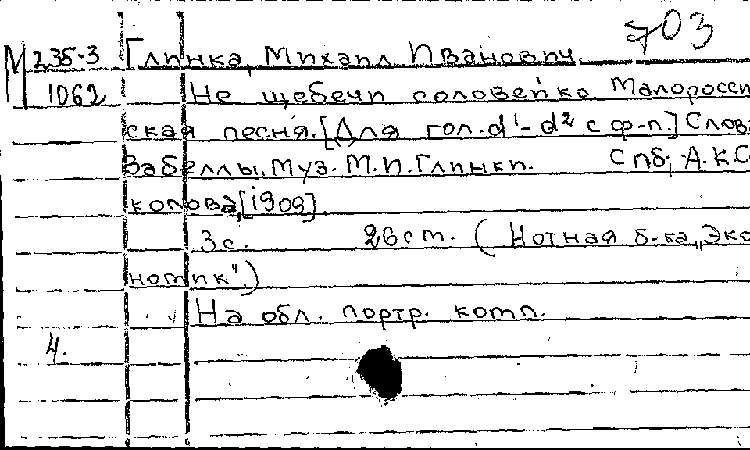 703
М 235-3 Глинка, Михаил Иванович.
1062 Не щебечи соловейко Малоросси
ская песня. [Для гол. d¹-d² с ф-п.] Слов
Забеллы. Муз. М.И. Глинки. Спб; А.К.С
колова, [1909].
3 с. 26 ст. (Нотная б-ка „Эко
номик".)
На обл. портр. комп.
4.